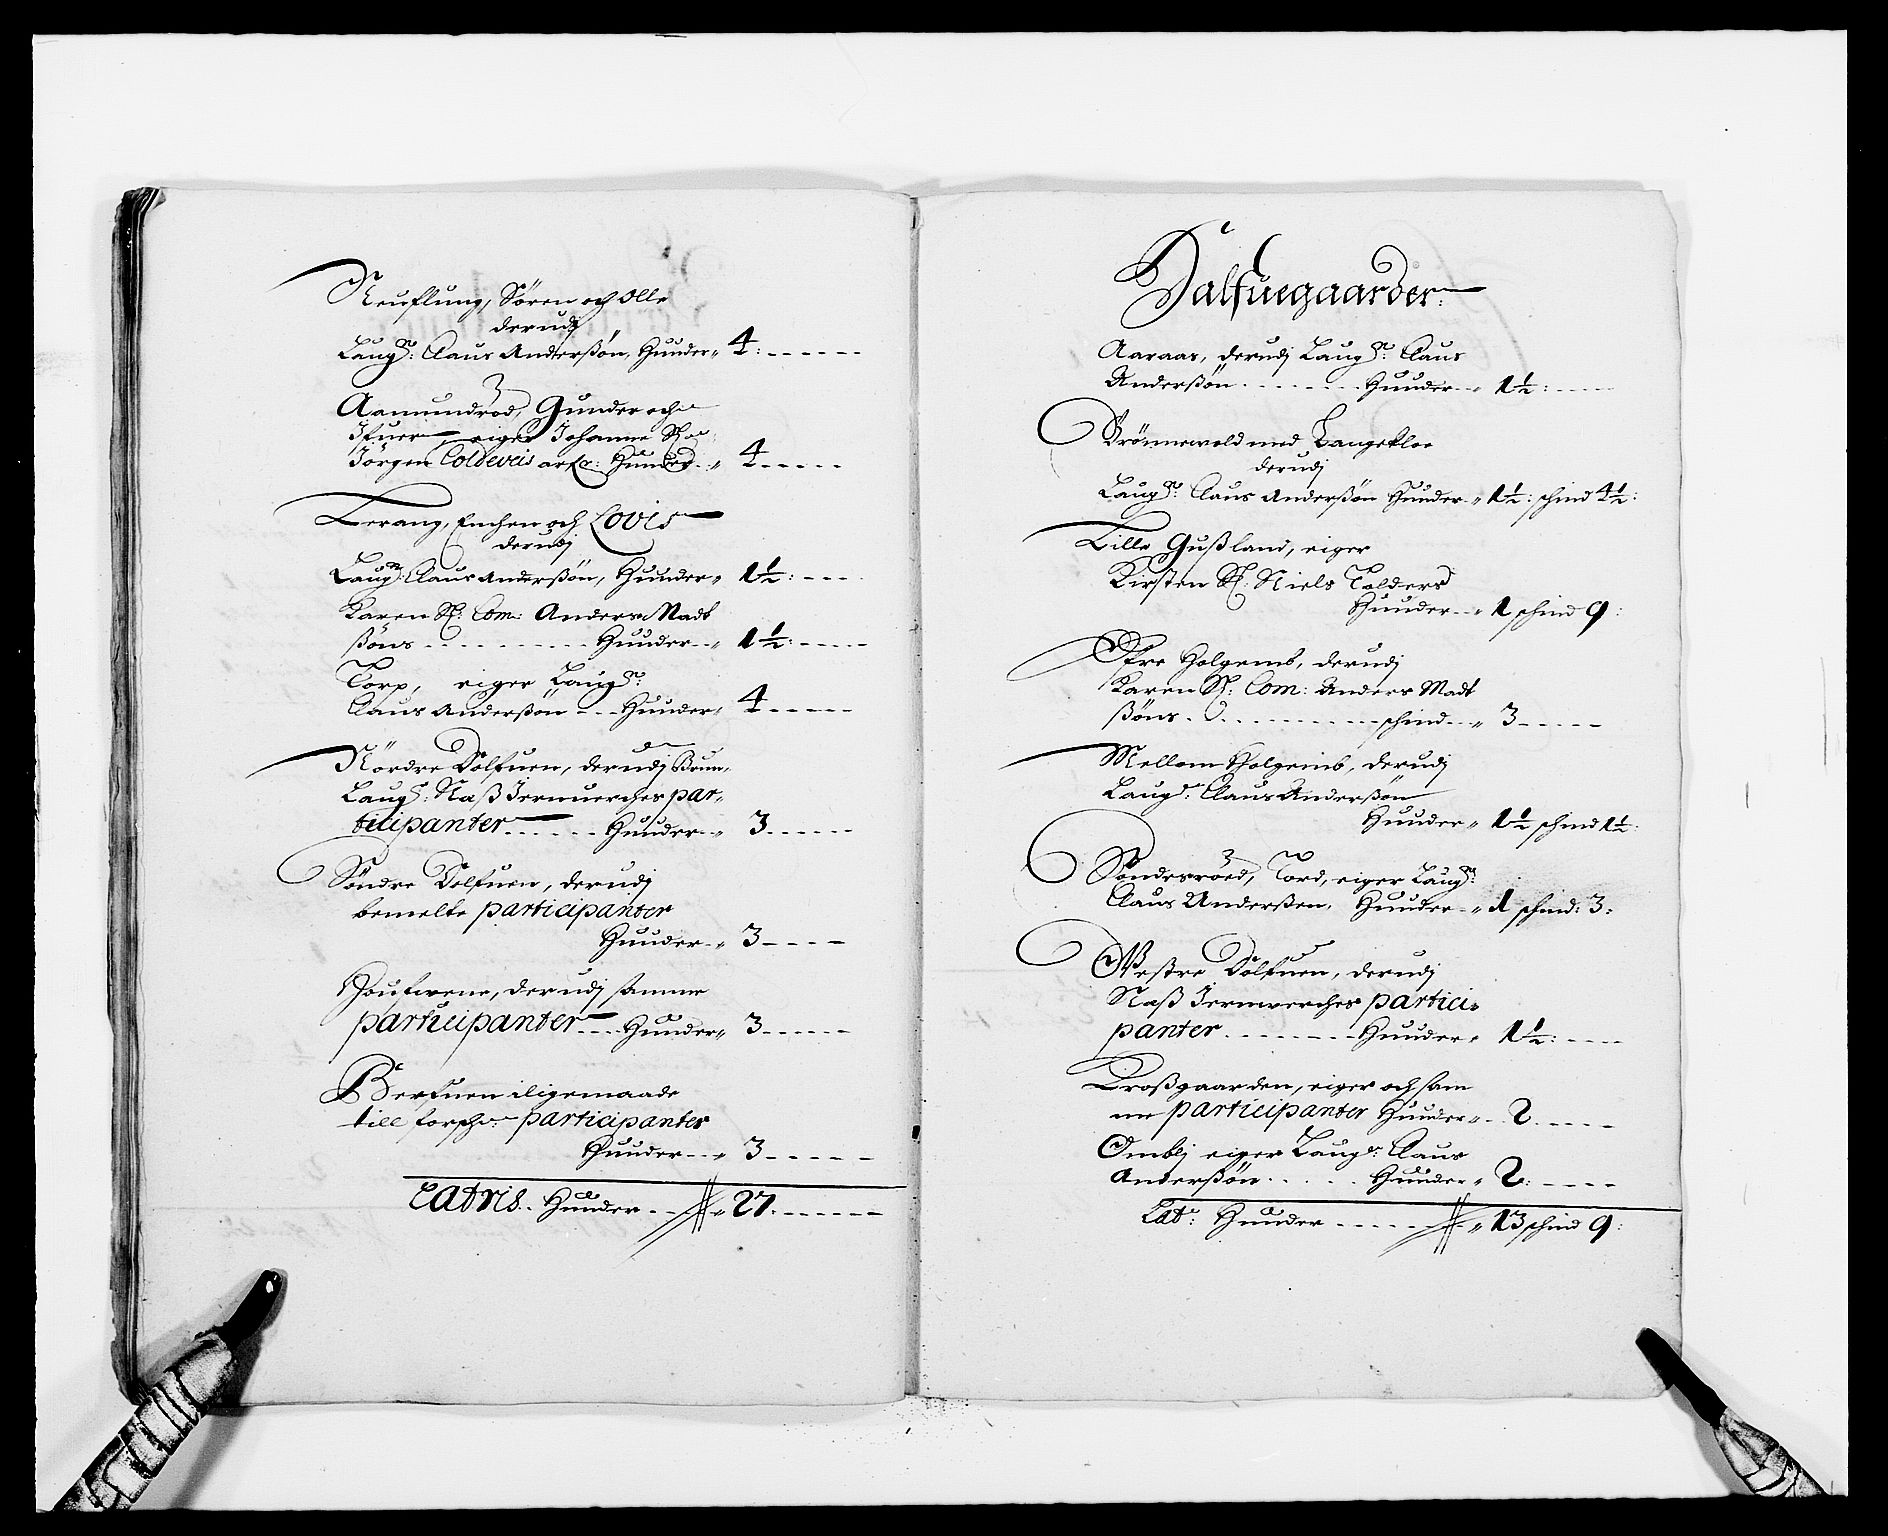 Neuflung, Sören och Olle
derudj
Laugm: Claus Anderßön, Huuder „ 4: - - - - -
Aamundröd, Gunder och
Ifuer eiger Johanne Sl
Jörgen Coldeveis arf: Huuder - „ 4 - - - - -
Terang, Enchen och Lovis
derudj
Laugm: Claus Anderßön, Huuder „ 1½: - - - -
Karen Sl: Com: Anders Madt
ßöns - - - - - - - - - Huuder - „ 1½: - - - - -
Torp, eiger Laugm:
Claus Anderßön - - - Huuder „ 4 - - - - -
Nördre Dolfuen, derudj Brun-
Laugs: Naß Jernuerches par-
ticipanter - - - - - Huuder - „ 3 - - - - -
Söndre Dolfuen, derudj
bemelte participanter
Huuder - „ 3 - - - -
Houfwene, derudj samme
participanter - - - Huuder „ 3 - - - - -
Berfuen iligemaade
till forschr: participanter
Huuder - - „ 3 - - - - -
Latris. Huuder - - - „ 27. - - - - - -
Halfuegaarder.
Aaraas, derudj Laugm: Claus
Anderßön - - - - - - - Huuder - „ 1½: - - - -
Brönnewold med Langekloe
derudj
Laugm: Claus Anderßön Huuder - „ 1½: schind 4½:
Lille Gußland, eiger
Kirsten Sl: Niels Tolders
Huuder - - „ 1 schind 9:
Öfre Holgemb, derudj
Karen Sl: Com: Anders Madt
ßöns - - - - - - - - - - schind - - „ 3 - - - - -
Mellom Holgemb, derudj
Laugm: Claus Anderßön
Huuder - „ 1½ schind 1½:
Sönderöed, Tord, eiger Laugm:
Claus Anderßen, Huuder - „ 1 schind: 3:
Westre Dolfuen, derudj
Naß Jernwerches partici-
panter - - - - - - - - Huuder „ 1½: - - - -
Troßgaarden, eiger och sam
me participanter Huuder „ - 2 - - - - -
Omblj eiger Laugm: Claus
Anderßön - - - - - Huuder „ 2: - - - -
Lat: Huuder - - - - - „ 13 schind 9: